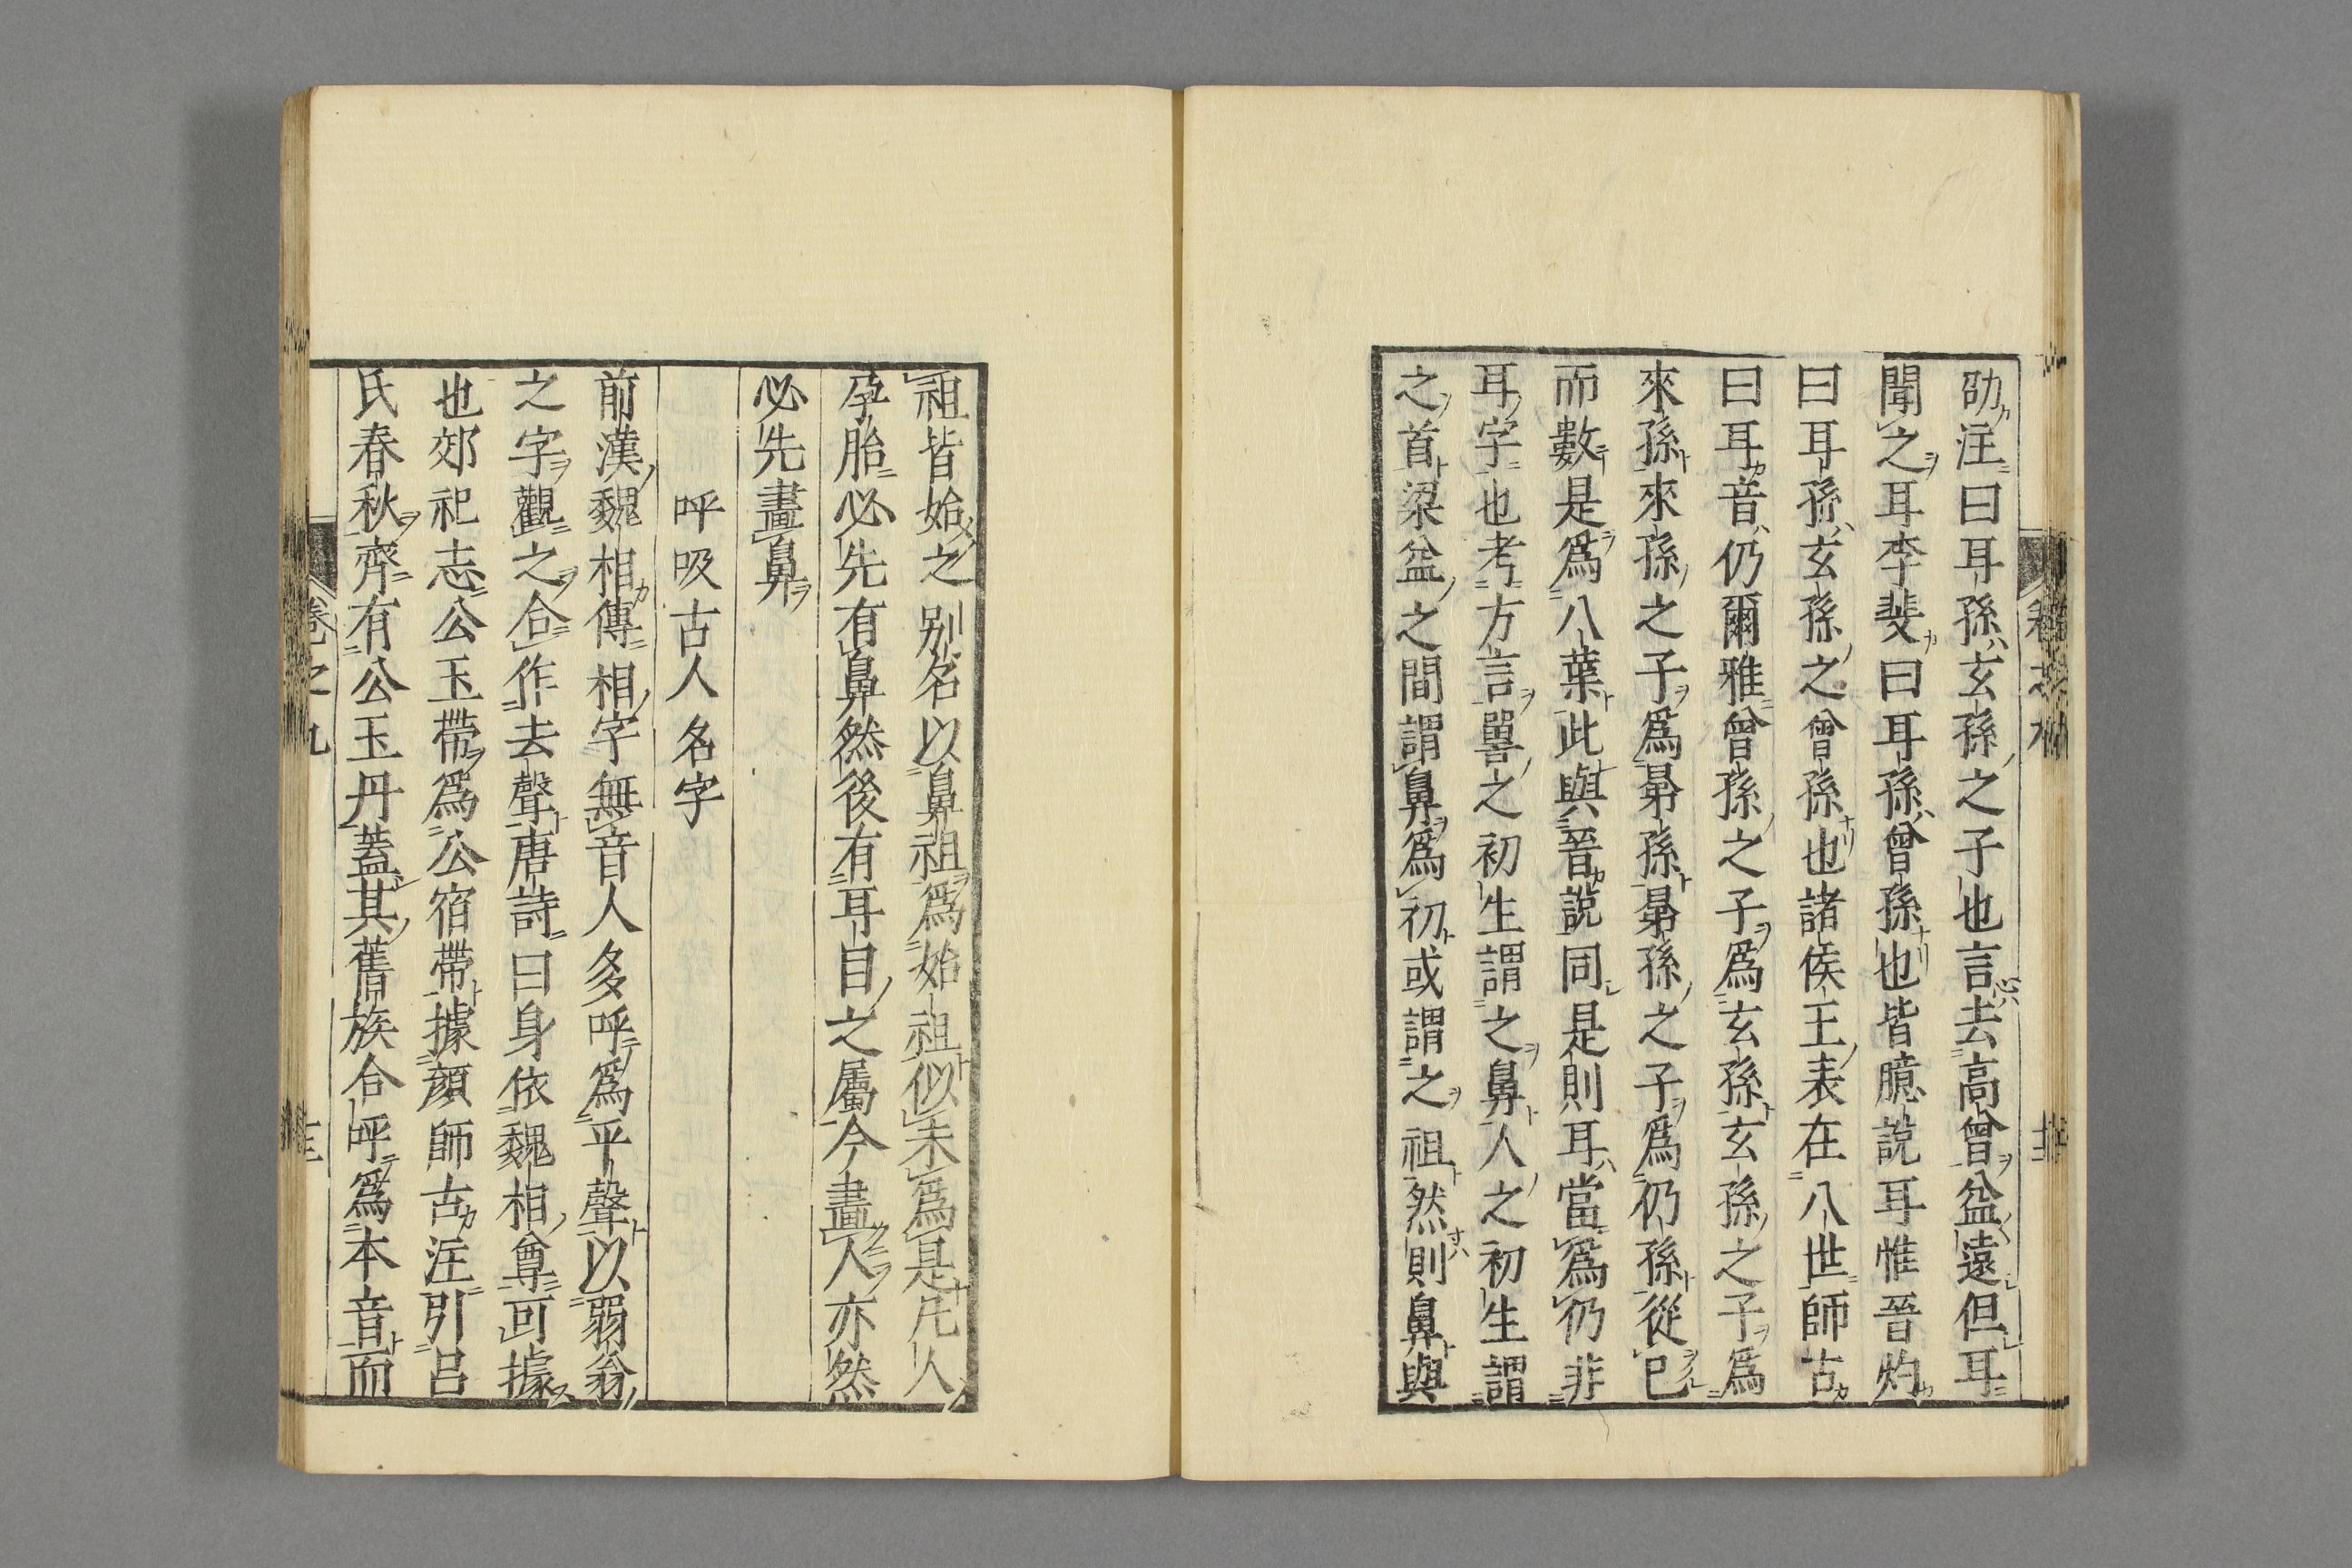 劭注曰耳孫玄孫之子也言去高曾益遠但耳
聞之耳李斐曰耳孫曾孫也皆臆說耳惟晉灼
曰耳孫玄孫之曾孫也諸侯王表在八世師古
曰耳音仍爾雅曾孫之子爲玄孫玄孫之子爲
來孫來孫之子爲晜孫晜孫之子爲仍孫從已
而數是爲八葉此與晉說同是則耳當爲仍非
耳字也考方言嘼之初生謂之鼻人之初生謂
之首梁益之間謂鼻爲初或謂之祖然則鼻與
祖皆始之別名以鼻祖爲始祖似未爲是凡人
孕胎必先有鼻然後有耳目之屬今畫人亦然
必先畫鼻
呼吸古人名字
前漢魏相傳相字無音人多呼爲平聲以弱翁
之字觀之合作去聲唐詩曰身依魏相尊可據
也郊祀志公玉帶爲公宿帶據顏師古注引呂
氏春秋齊有公玉丹蓋其舊族合呼爲本音而
卷之九